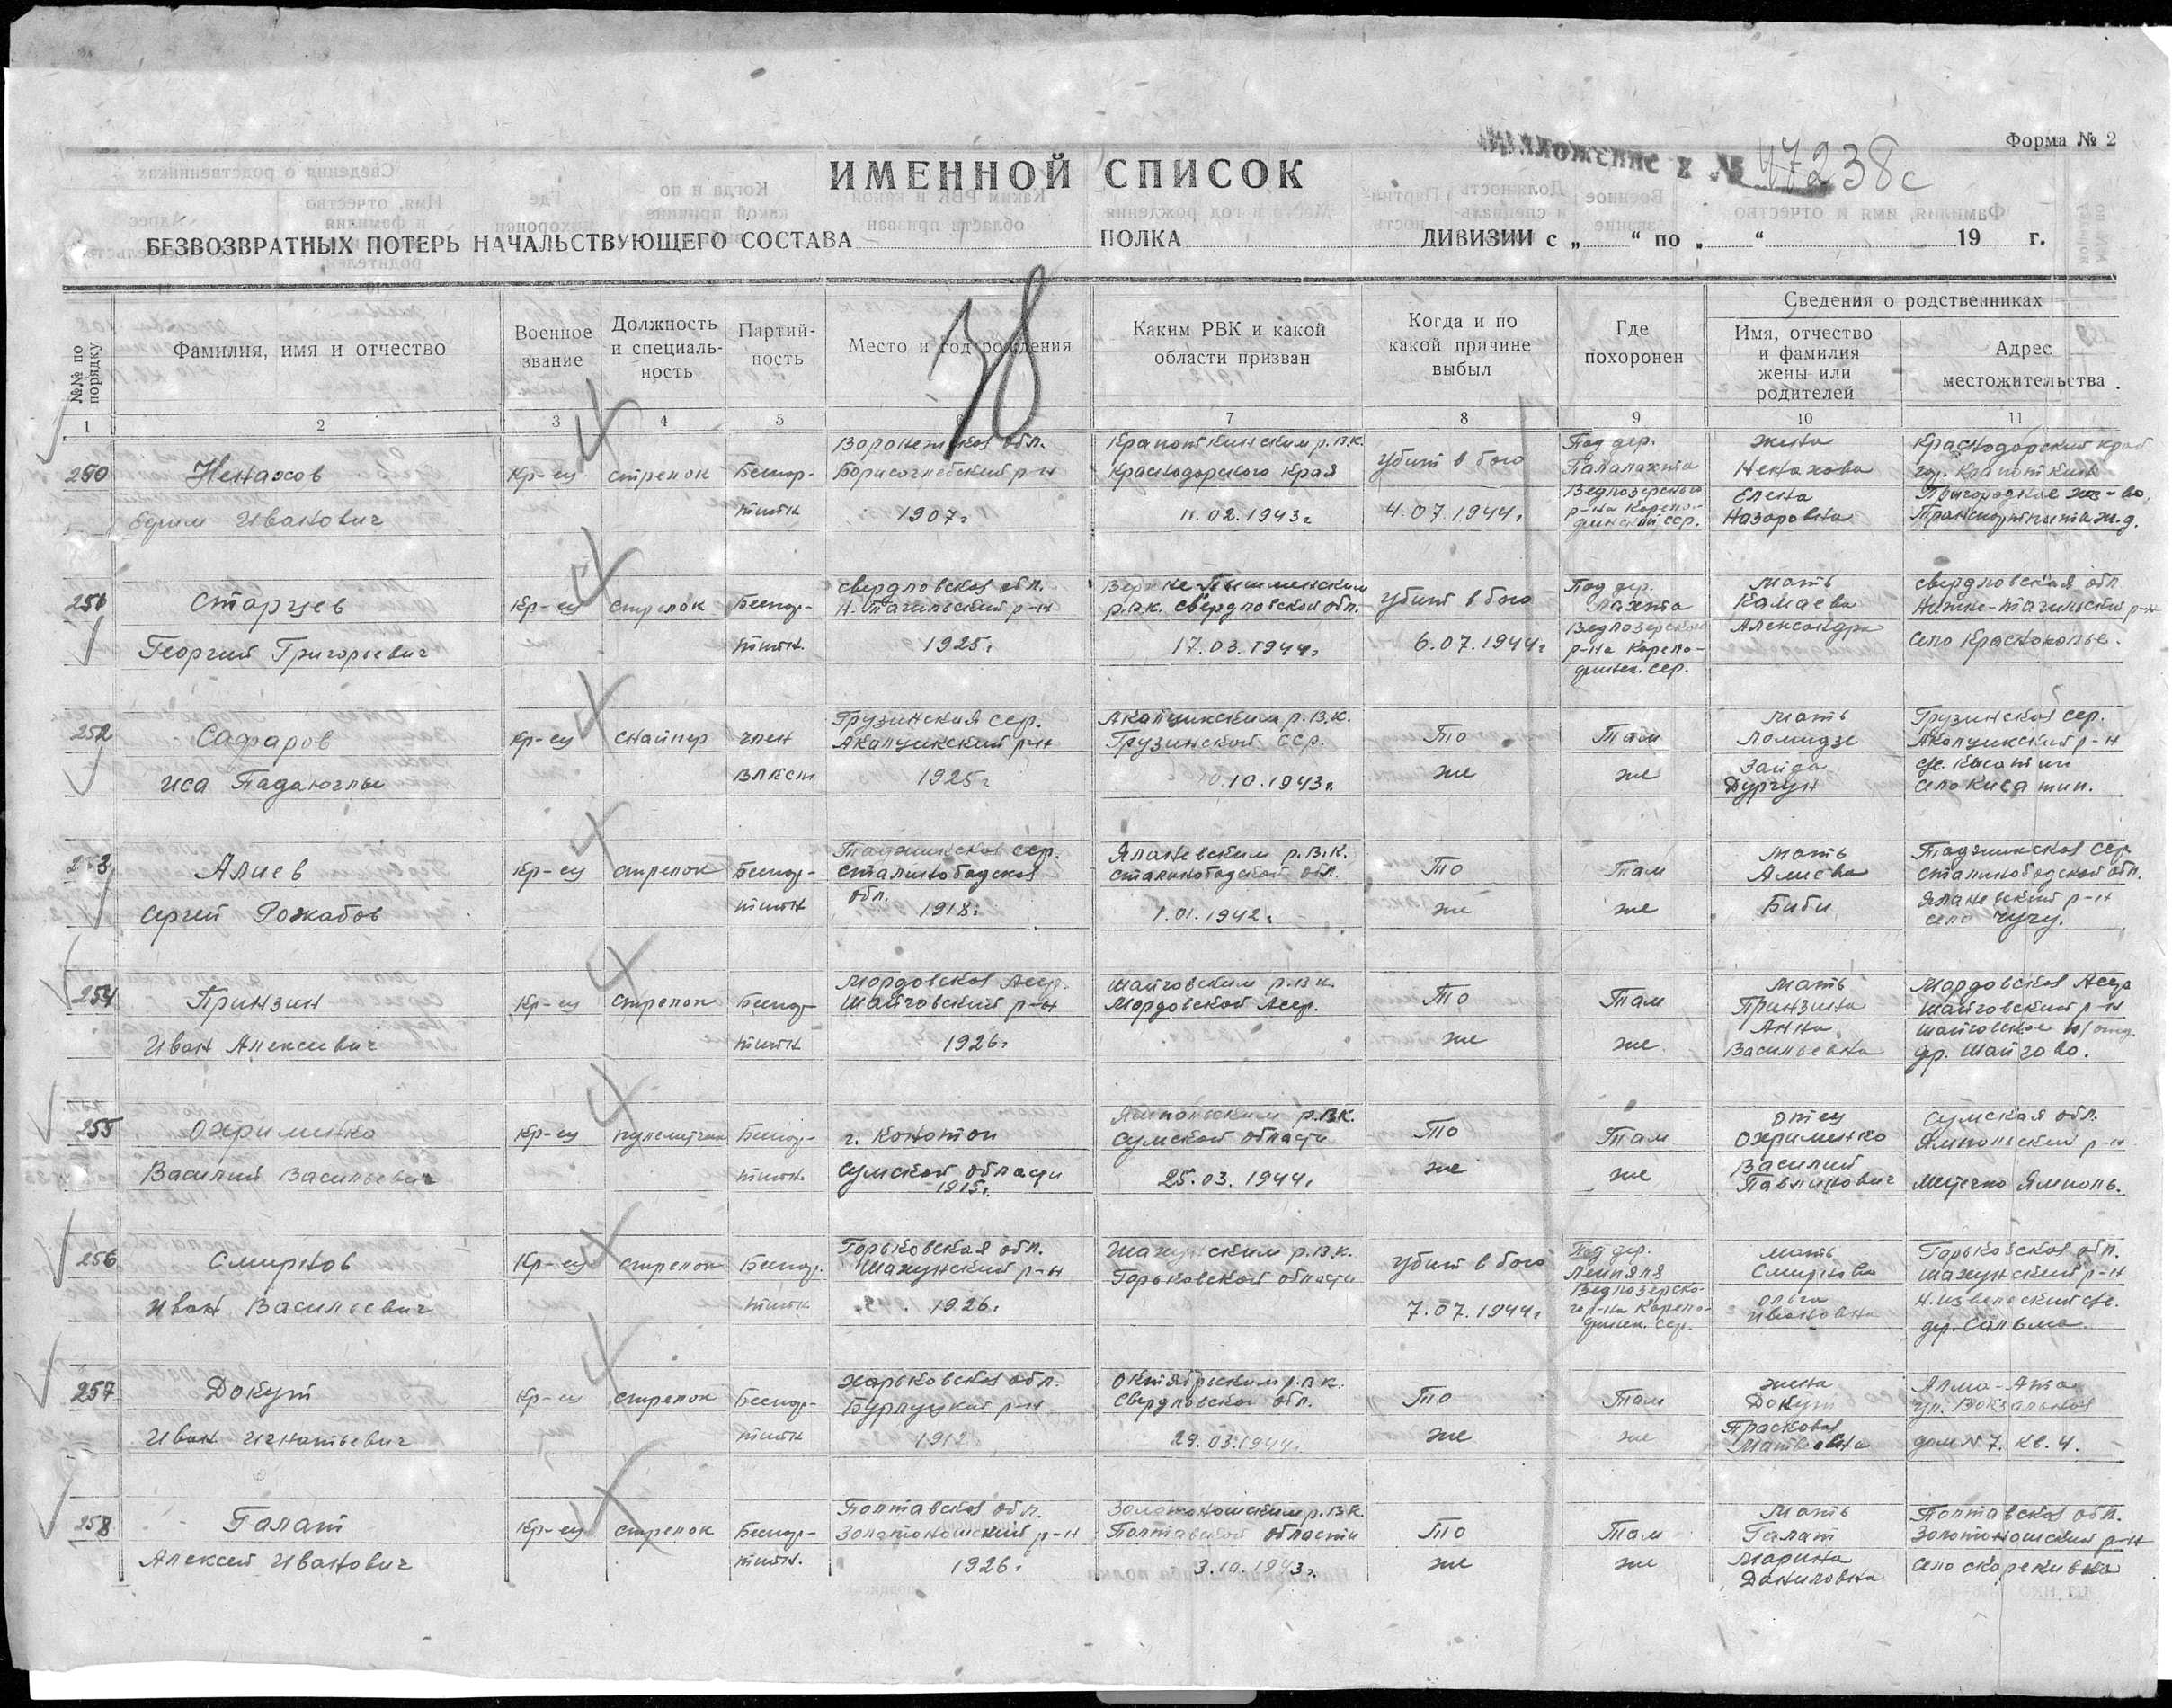 Форма № 2
Приложение к № 47238с
ИМЕННОЙ СПИСОК
БЕЗВОЗВРАТНЫХ ПОТЕРЬ НАЧАЛЬСТВУЮЩЕГО СОСТАВА ПОЛКА ДИВИЗИИ с „ “ по „ “ 19 г.
38
№№ по порядку
Фамилия, имя и отчество
Военное звание
Должность и специальность
Партийность
Место и год рождения
Каким РВК и какой области призван
Когда и по какой причине выбыл
Где похоронен
Сведения о родственниках
Имя, отчество и фамилия жены или родителей
Адрес местожительства
1 2 3 4 5 6 7 8 9 10 11
250 Ненахов Кр-ец стрелок Беспар-
Ефим Иванович тийн
Воронежская обл.
Борисоглебский р-н
1907г
Крапоткинским р.в.к.
Краснодорского Края
11.02.1943г
Убит в бою
4.07 1944г
Под дер.
Палалахта
Ведлозерского
р-на Карело-
финской сср.
жена
Ненахова
Елена
Назаровна
Краснодорский край
гор. Крапоткин
Пригородное хоз-во,
251 Старцев Кр-ец стрелок Беспар-
Георгий Григорьевич тийн.
Свердловская обл.
Н. Тагильский р-н
1925г
Верхне Пышменским
р.в.к. Свердловской обл.
17.03.1944г
Убит в бою
6.07.1944г
Под дер.
лахта
Ведлозерского
р-на Карело-
финск. сср.
мать
Камаева
Александра
Свердловская обл
Нижне-тагильский р-н
село Краснополье.
252 Сафаров Кр-ец снайпер член
Иса Падаюглы влксм
Грузинская сср.
Акалцикский р-н
1925г
Акалцикским р.в.к.
Грузинской сср.
10.10.1943г
То же
Там же
мать
Ломидзе
Заида
Дургун
Грузинская сср.
Акалцикский р-н
село Кисатип.
253 Алиев Кр-ец стрелок Беспар-
Сергей Рожабов тийн
Таджикская сср.
Сталинободская
обл. 1918г
Яланевским р.в.к.
Сталинободской обл.
1.01.1942г
То же
Там же
мать
Алиева
Биби
Таджикская сср
Сталинободской обл.
Яланевский р-н
село Чучу.
254 Принзин Кр-ец стрелок Беспар-
Иван Алексеевич тийн
Мордовская Асср.
Шайговский р-н
1926г
Шайговским р.в.к.
Мордовской Асср.
То же
Там же
мать
Принзина
Анна
Васильевна
Мордовская Асср
Шайговский р-н
дер. Шайгово.
255 Охрименко Кр-ец пулеметчик Беспар-
Василий Васильевич тийн
г. Конотоп
Сумской области
1915г.
Ямпольским р.вк.
Сумской области
25.03.1944г
То же
Там же
отец
Охрименко
Василий
Павлинович
Сумская обл.
Ямпольский р-н
местечко Ямполь.
256 Смирнов Кр-ец стрелок Беспар.
Иван Васильевич тийн
Горьковская обл.
Шахунский р-н
1926г
Шахунским р.в.к.
Горьковской области
Убит в бою
7.07.1944г
Под дер.
Лейпяля
Ведлозерско-
го р-на Карело-
финск. сср.
мать
Смирнова
Ольга
Ивановна
Горьковская обл.
Шахунский р-н
257 Докут Кр-ец стрелок Беспар-
Иван Игнатьевич тийн
Харьковская обл.
Бурлуцкий р-н
1912
Октябрьским р.в.к.
Свердловской обл.
29.03.1944г
То же
Там же
жена
Докут
Прасковья
Матвеевна
Алма-Ата
ул. Вокзальная
дом №7. кв. 4.
258 Галат Кр-ец стрелок Беспар-
Алексей Иванович тийн.
Полтавская обл.
Золотоношский р-н
1926г
Золотоношским р.в.к.
Полтавской области
3.10.1943г.
То же
Там же
мать
Галат
Марина
Даниловна
Полтавская обл.
Золотоношский р-н
село Скорековка